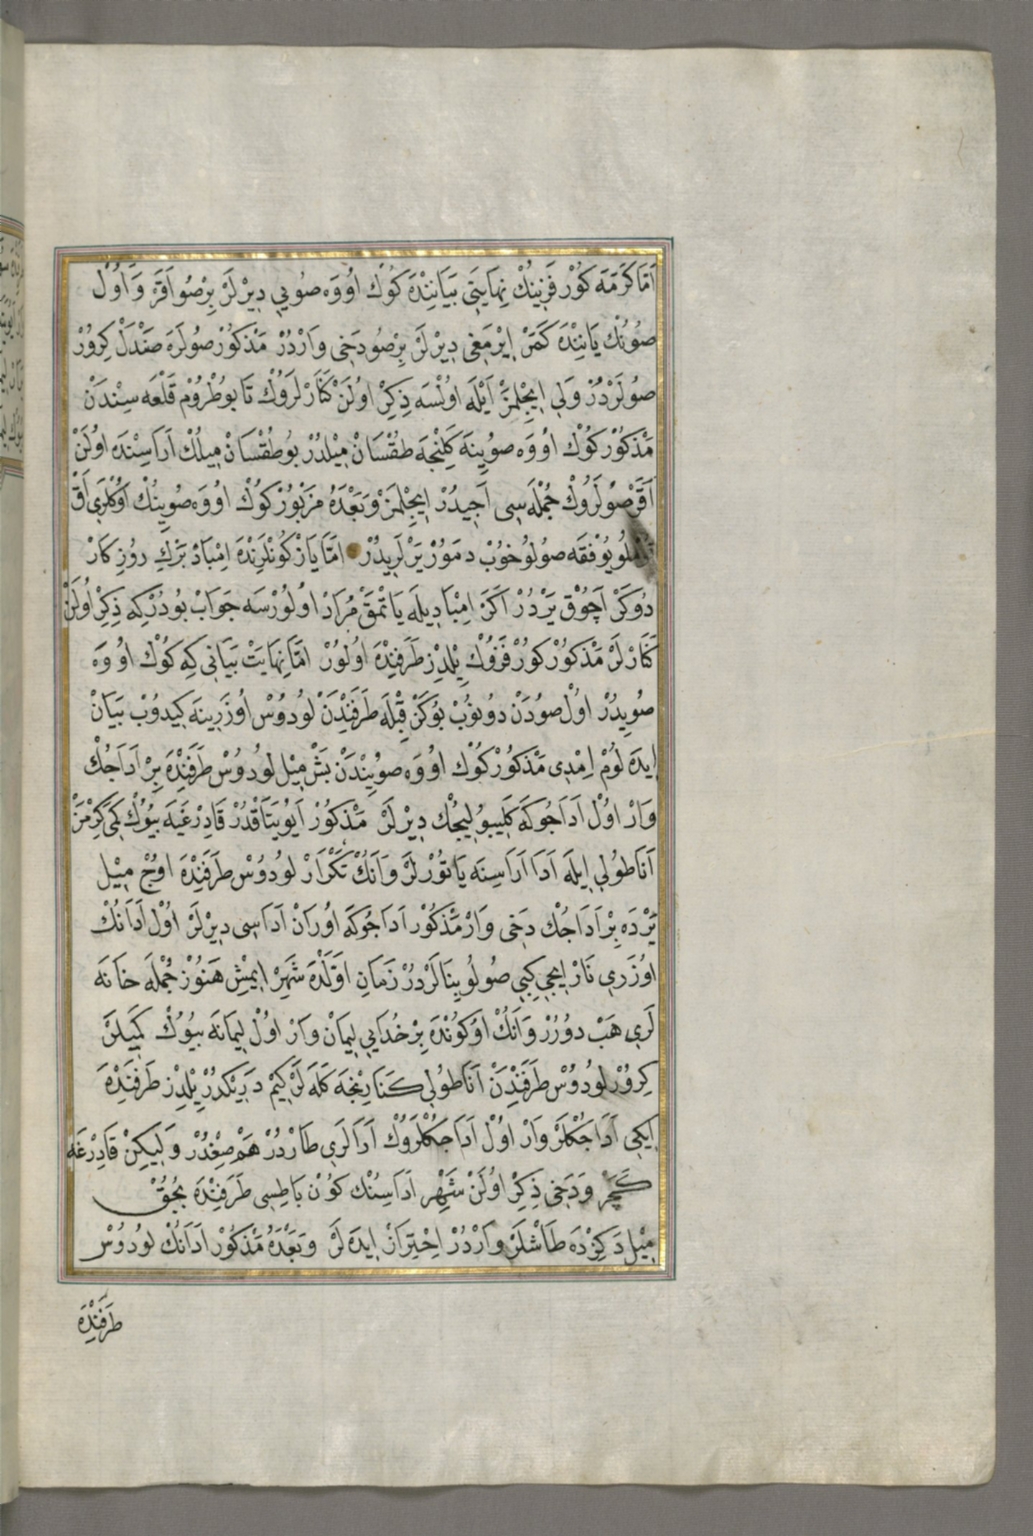 اَمَّا كَرَمَه كُوْرْ فَزِيْنُكْ نِهَايَتِي بَيَانِنْدَه كُوكْ اُوْوَه صُويِي دِيْرْلَرْ بِرْ صُو اَقَرَ وَ اُولْ
صُوُنُكْ يَانِنْدَه كَمَرْ اِيرْمَغِي دِيْرْلَرْ بِرْ صُو دَخِي وَارْدُرْ مَذْكُورْ صُولَرَه صَنْدَلْ كِرُورْ
صُولَرْدُرْ وَلِي اِيچِلْمَزْ اَيْلَه اُولْسَه ذِكِرْ اُولَنْ كَنَارْلَرُوكْ تَا بُوطْرُومْ قَلْعَه سِنْدَنْ
مَذْكُورْ كُوكْ اُوْوَه صُويِنَه كَلِنْجَه طُقْسَانْ مِيْلْدُرْ بُو طُقْسَانْ مِيلُكْ اَرَاسِنْدَه اُولَنْ
اَقَرْ صُولَرُوكْ جُمْلَه سِي اَجِيدُرْ اِيچِلْمَزْ وَبَعْدَهُ مَزْبُورْ كُوكْ اُوْوَه صُويِنُكْ اُوكْلَرِي اَقْ
قُمْلُو يُوفْقَه صُولُو خُوبْ دَمُورْ يَرْلَرِيدُرْ اَمَّا يَازْ كُونْلَرِنْدَه اِمْبَادْ بَرْكْ رُوزِكَارْ
دُوكَرْ اَچُوقْ يَرْدُرْ اَكَرْ اِمْبَادِيلَه يَاتْمَقْ مُرَادْ اُولُورْسَه جَوَابْ بُودُرْ كِه ذِكِرْ اُولَنْ
كَنَارْلَرْ مَذْكُورْ كُورْفَزُوكْ يِلْدِزْ طَرَفِنْدَه اُولُورْ اَمَّا نِهَايَتْ بَيَانِي كِه كُوكْ اُوْوَه
صُويِدُرْ اُولْ صُودَنْ دُونُوبْ بُوكَزْ قِبْلَه طَرَفِنْدَنْ لُودُوسْ اُوزَرِينَه كِيدُوبْ بَيَانْ
اِيدَه لُومْ اِمْدِي مَذْكُورْ كُوكْ اُوْوَه صُويِنْدَنْ بَشْ مِيْلْ لُودُوسْ طَرَفِنْدَه بِرْ اَدَاجُكْ
وَارْ اُولْ اَدَاجُوكَه كَلِيبُولِيجُكْ دِيْرْلَرْ مَذْكُورْ اَيُو يَتَاقْدُرْ قَادِرْغَيَه بُيُوكْ كَمِي كِرْمَزْ
اَنَاطُولِي اِيلَه اَدَا اَرَاسِنَه يَاتُورْلَرْ وَاَنُكْ تَكْرَارْ لُودُوسْ طَرَفِنْدَه اُوچْ مِيْلْ
يَرْدَه بِرْ اَدَاجُكْ دَخِي وَارْ مَذْكُورْ اَدَاجُوكَه اُورَانْ اَدَاسِي دِيْرْلَرْ اُولْ اَدَانُكْ
اُوزَرِي نَارْ اِيچِي كِبِي صُولُو بِنَالَرْدُرْ زَمَانِ اَوَّلْدَه شَهِرْ اِيمِشْ هَنُوزْ جُمْلَه خَانَه
لَرِي هَبْ دُورُرْ وَاَنُكْ اُوكُونْدَه بِرْ خُدَايِي لِيمَانْ وَارْ اُولْ لِيمَانَه بُيُوكْ كَمِيلَرْ
كِرُورْ لُودُوسْ طَرَفِنْدَنْ اَنَاطُولِي كَنَارِنْجَه كَلَه لَرْ كِيمْ دَرِيْنْكْدُرْ يِلْدِزْ طَرَفِنْدَه
اِيكِي اَدَاجُكْلَرْ وَارْ اُولْ اَدَاجُكْلَرُوكْ اَدَالَرِي طَارْدُرْ هَمْ صِغْدُرْ وَلِيكِنْ قَادِرْغَه
كَچَرْ وَدَخِي ذِكِرْ اُولَنْ شَهِرْ اَدَاسِنُكْ كُونْ بَاطِسِي طَرَفِنْدَه بُچُقْ
مِيْلْ دَكِزْدَه طَاشْلَرْ وَارْدُرْ اِحْتِرَازْ اِيدَه لَرْ وَبَعْدَهُ مَذْكُورْ اَدَانُكْ لُودُوسْ
طَرَفِنْدَه